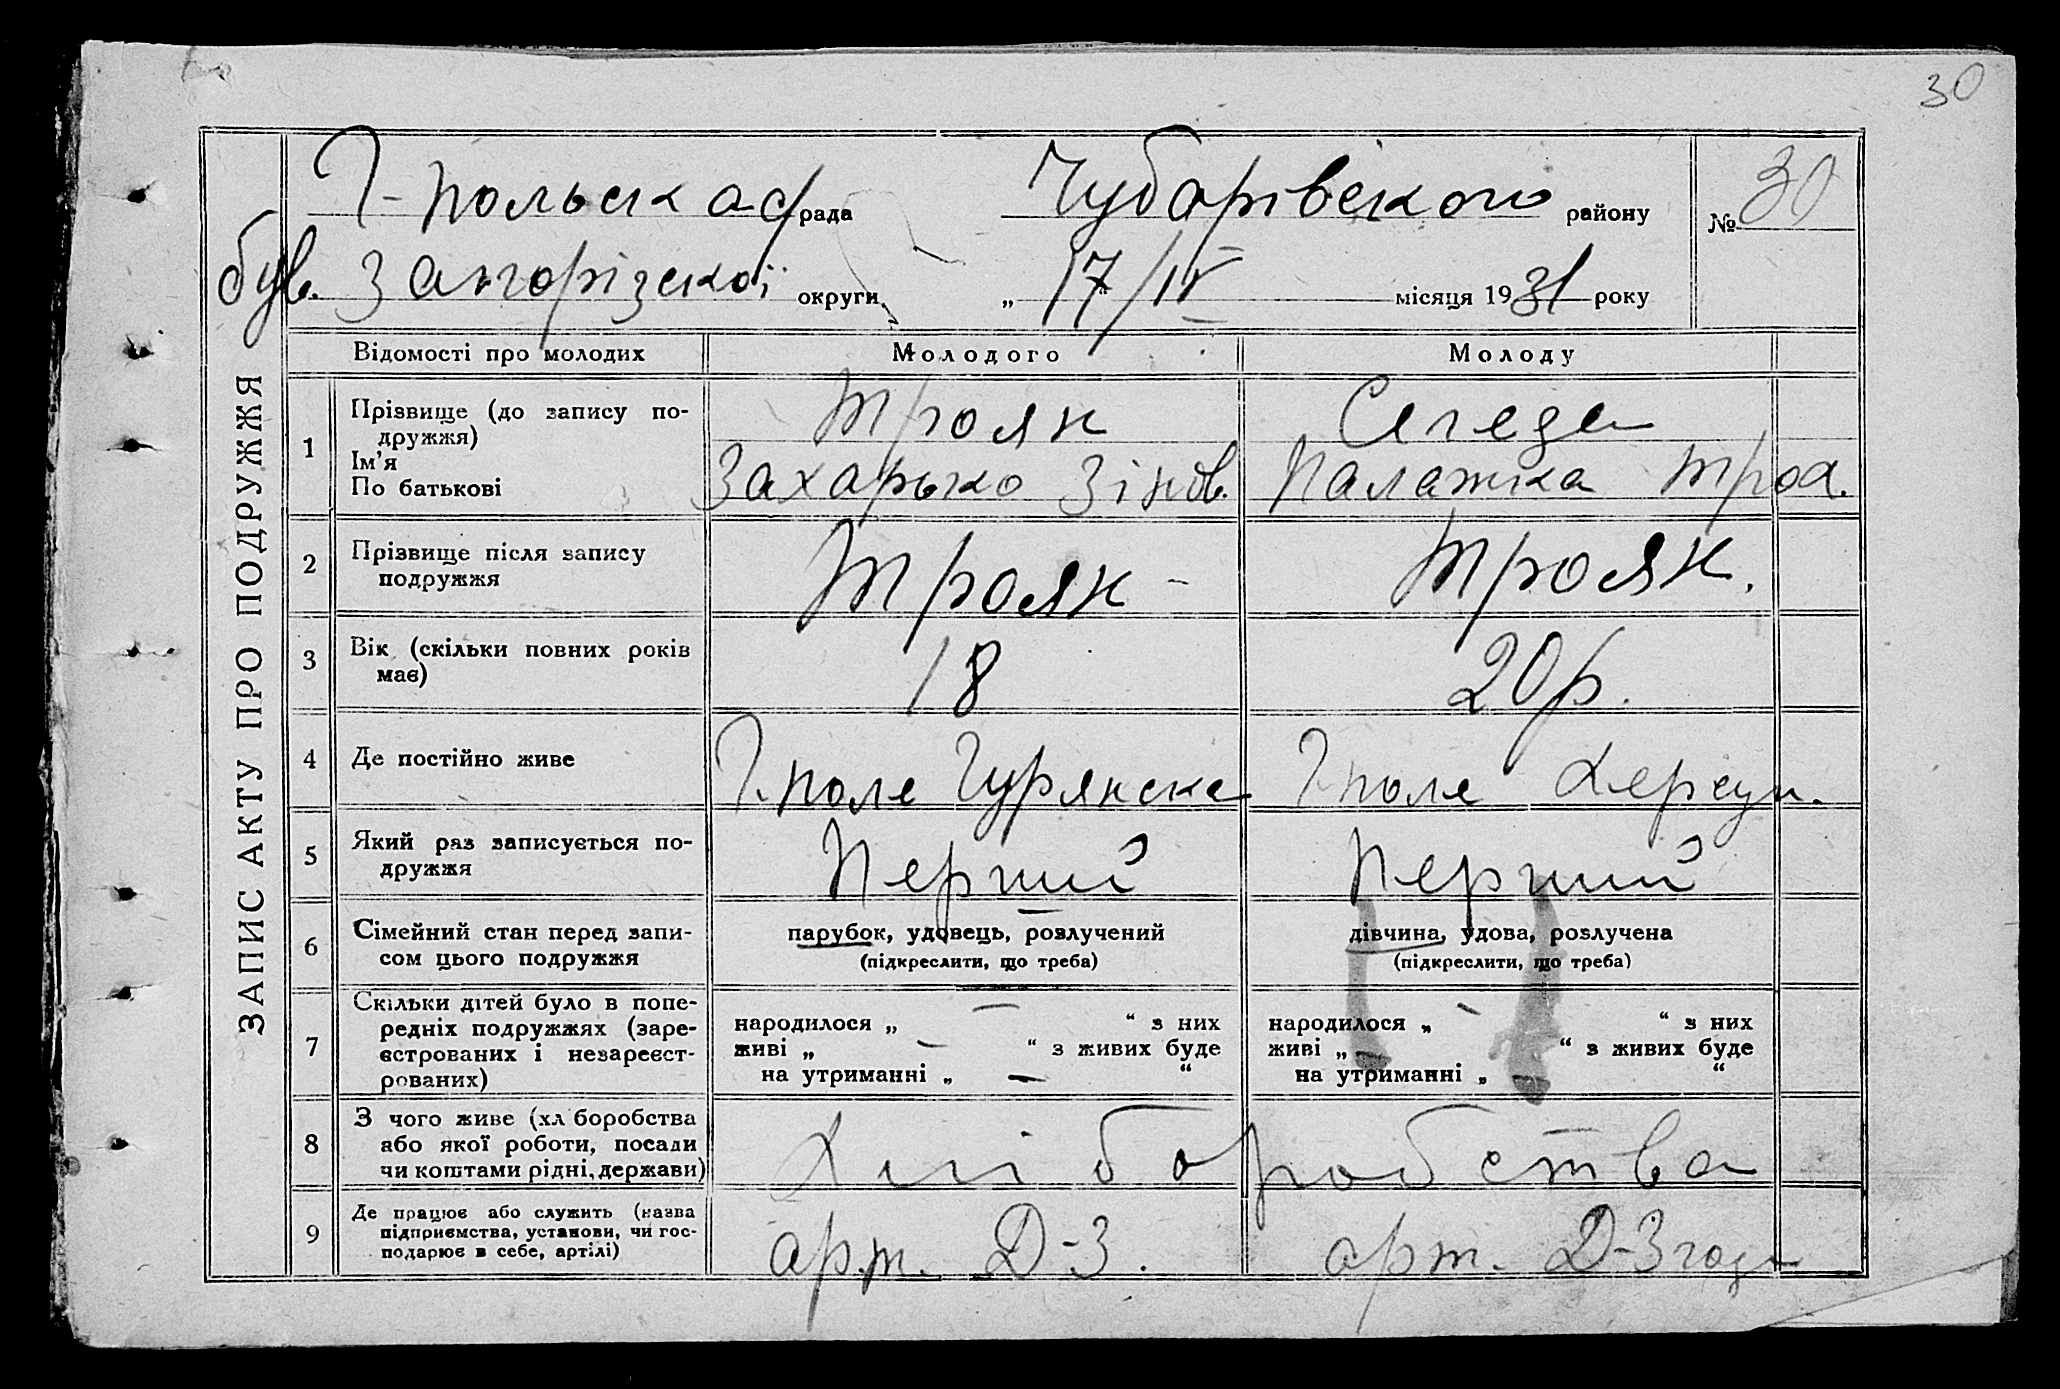 30
Г-польська с/рада Чубарівського району № 30
був. Запорізської округи „ 17/IV " місяця 1931 року
ЗАПИС АКТУ ПРО ПОДРУЖЖЯ
Відомості про молодих Молодого Молоду
1 Прізвище (до запису по- Троян Сегеда
дружжя)
Ім'я
По батькові Захарько Зінов. Палажка Трох.
2 Прізвище після запису Троян - Троян.
подружжя
3 Вік (скільки повних років 18 20 р.
має)
4 Де постійно живе Г-поле Гурянске Г-поле Херсун.
5 Який раз записується по- Перший Перший
дружжя
6 Сімейний стан перед запи- парубок, удовець, розлучений дівчина, удова, розлучена
сом цього подружжя (підкреслити, що треба) (підкреслити, що треба)
7 Скільки дітей було в попе-
редніх подружжях (заре- народилося „ — “ з них народилося „ — “ з них
єстрованих і незареєст- живі „ — “ з живих буде живі „ — “ з живих буде
рованих) на утриманні „ — “ на утриманні „ — “
8 З чого живе (хл боробства Хліборобства
або якої роботи, посади
чи коштами рідні, держави)
9 Де працює або служить (назва арт. Д-3. арт. Д-3 год
підприємства, установи, чи гос-
подарює в себе, артілі)